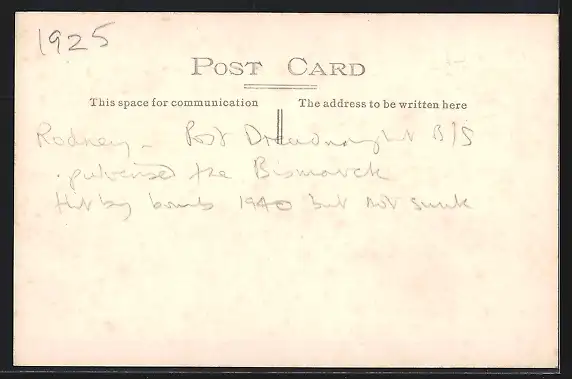 1925
POST CARD
This space for communication
The address to be written here
Rodney - Post Dreadnaught B/S
. pulverised the Bismarck
Hit by bombs 1940 but not sunk